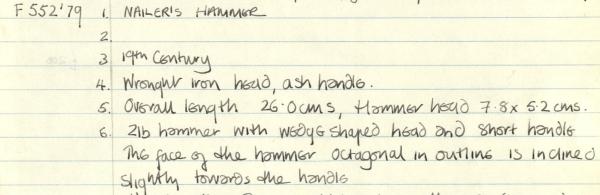 F 552'79 1. NAILER'S HAMMER
2.
3 19th Century
4. Wrought iron head, ash handle.
5. Overall length 26.0cms, Hammer head 7.8 x 5.2 cms.
6. 2lb hammer with wedge shaped head and short handle
The face of the hammer octagonal in outline is inclined
slightly towards the handle